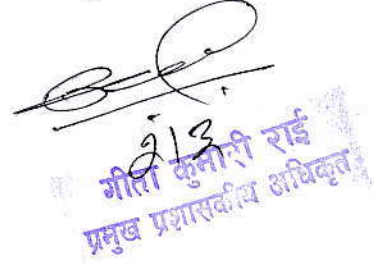 २।३
गीता कुमारी राई
प्रमुख प्रशासकीय अधिकृत